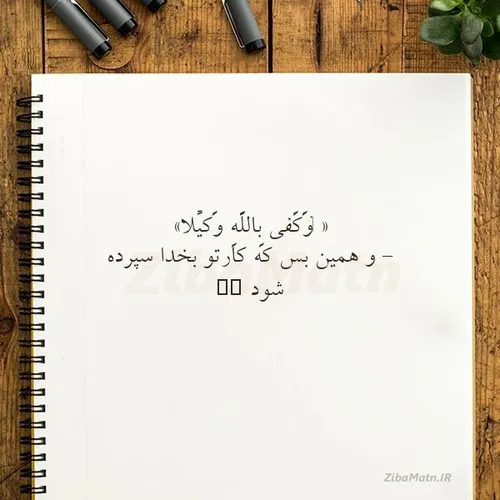 « وَكَفى باللَّه وَكيٖلا»
– و همین بس که کارتو بخدا سپرده
شود
ZibaMatn
ZibaMatn.IR